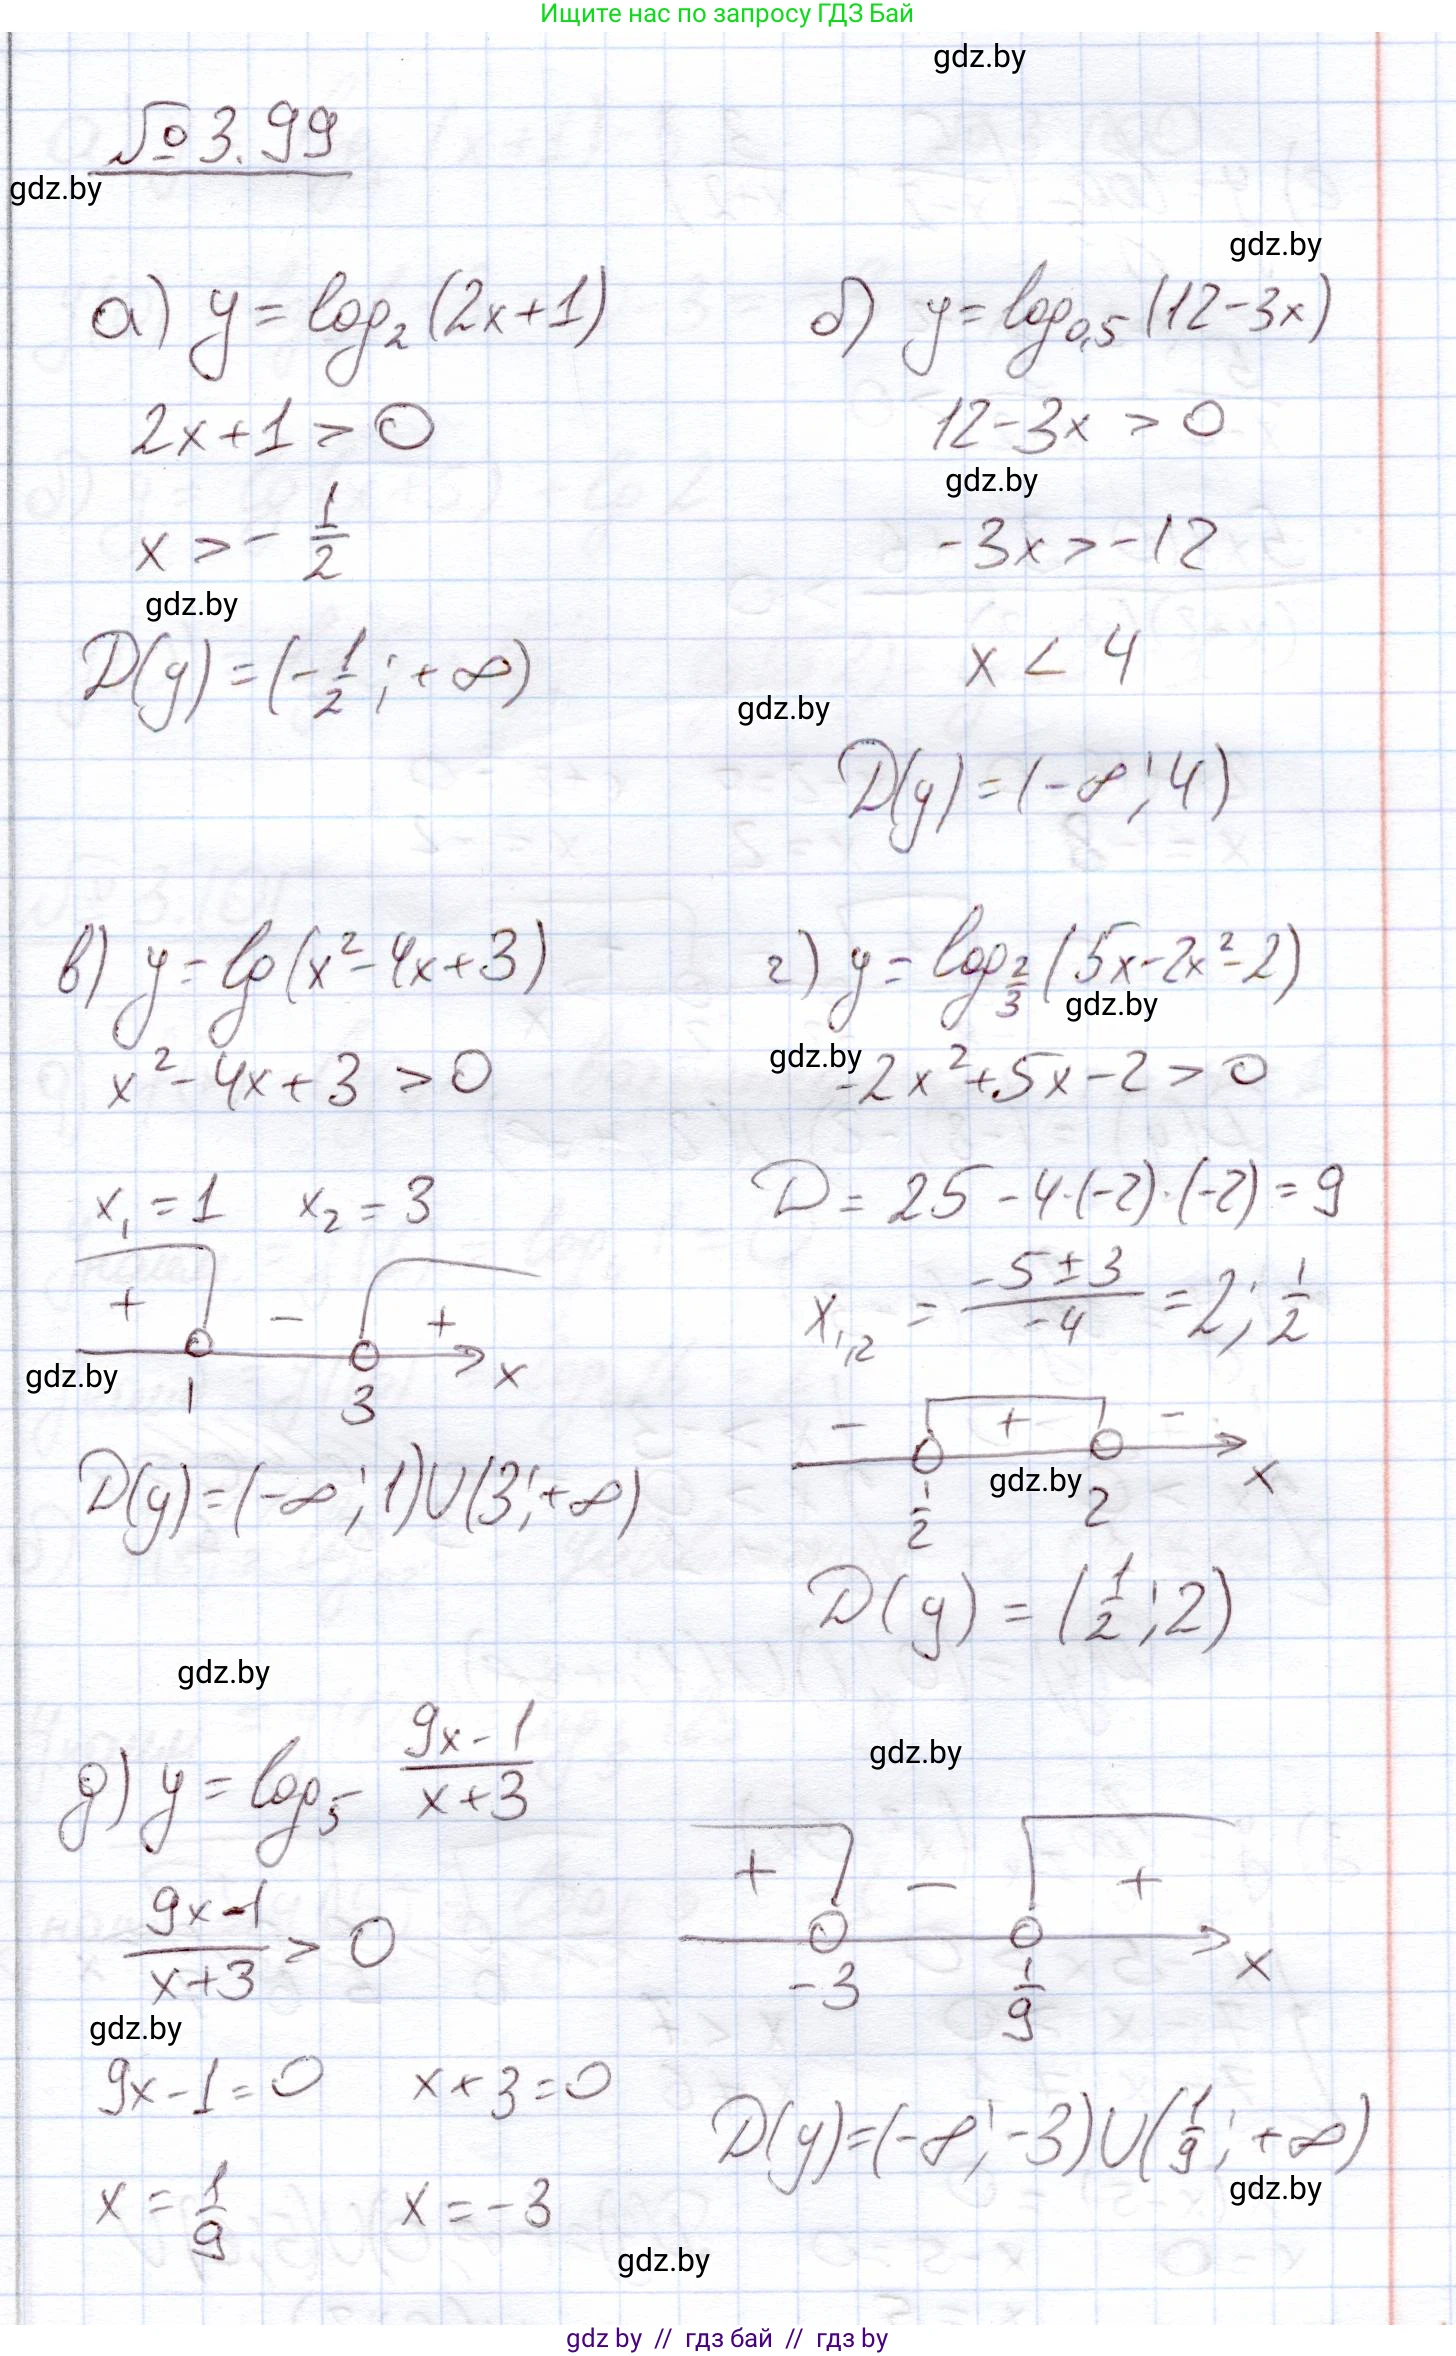 Ищите нас по запросу ГДЗ Бай
gdz.by
№ 3.99
gdz.by
gdz.by
а) y = log₂ (2x+1)
2x+1 > 0
x > - 1/2
gdz.by
D(y) = (-1/2; +∞)
б) y = log₀,₅ (12-3x)
12-3x > 0
gdz.by
-3x > -12
x < 4
gdz.by
D(y) = (-∞; 4)
в) y = lg(x²-4x+3)
x²-4x+3 > 0
x₁ = 1 x₂ = 3
+ - +
gdz.by
1 3 x
D(y) = (-∞; 1)∪(3; +∞)
г) y = log_2/3 (5x-2x²-2)
gdz.by
gdz.by
-2x²+5x-2 > 0
D = 25-4·(-2)·(-2) = 9
x₁,₂ = (-5±3)/(-4) = 2; 1/2
- + -
gdz.by
1/2 2 x
D(y) = (1/2; 2)
gdz.by
д) y = log₅ (9x-1)/(x+3)
(9x-1)/(x+3) > 0
gdz.by
9x-1=0 x+3=0
x = 1/9 x = -3
gdz.by
+ - +
-3 1/9 x
D(y)=(-∞; -3)∪(1/9; +∞)
gdz.by
gdz.by
gdz by // гдз бай // гдз by